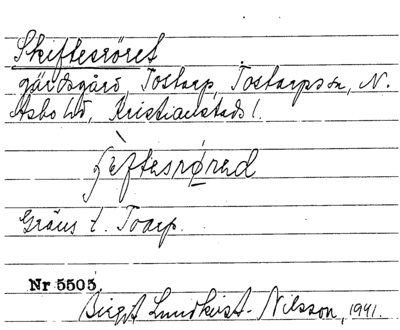 Skiftesröret
gärdsgård, Tostarp, Tostarps sn, N.
Åsbo hd, Kristianstads l.
Gräns t. Toarp.
Nr 5505.
Birgit Lundkvist-Nilsson, 1941.